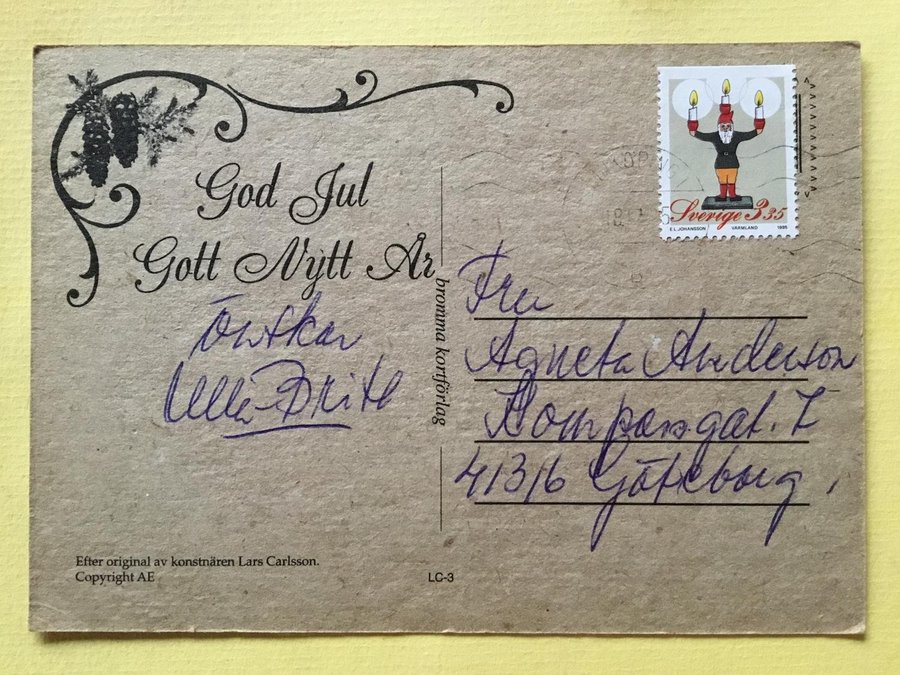 God Jul
Gott Nytt År
önskar
Ulla-Britt
Efter original av konstnären Lars Carlsson.
Copyright AE
LC-3
bromma kortförlag
Sverige 3.35
E L JOHANSSON VÄRMLAND 1995
Fru
Agneta Anderson
Kompassgat. 7
41316 Göteborg.